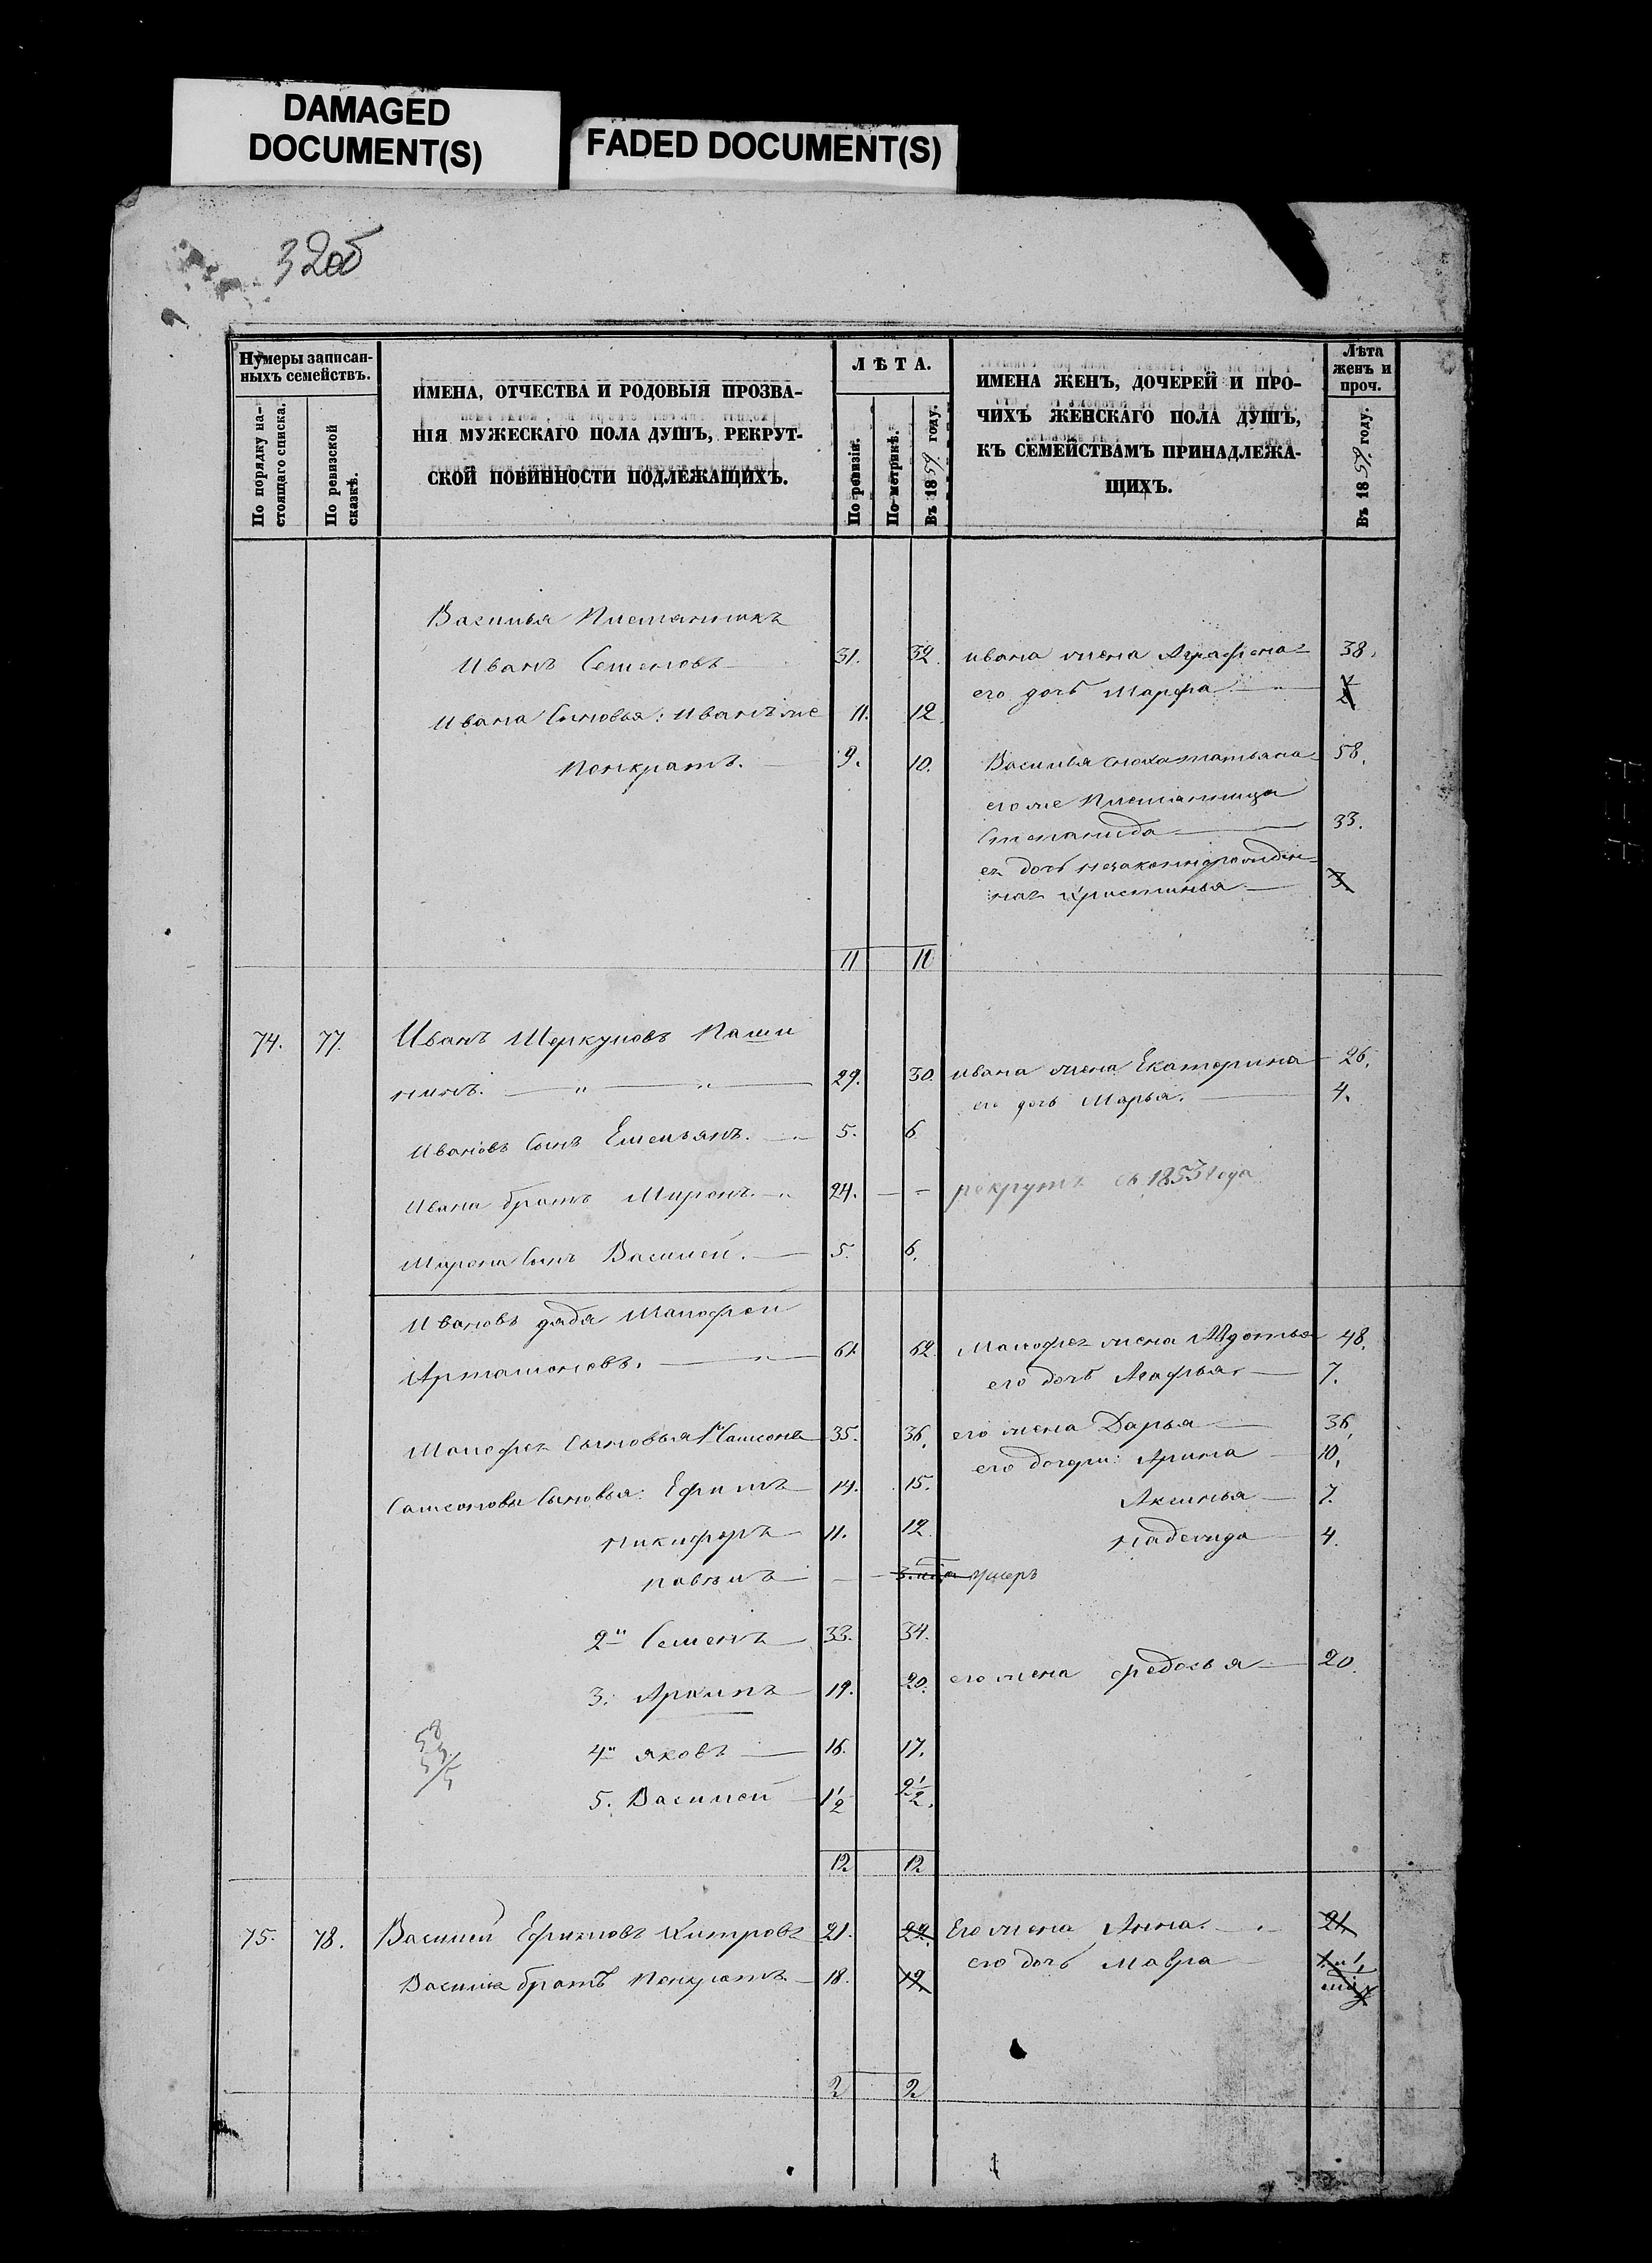 DAMAGED
DOCUMENT(S)
FADED DOCUMENT(S)
32об
Нумеры записан-
ныхъ семействъ.
По порядку на-
стоящаго списка.
По ревизской
сказкѣ.
ИМЕНА, ОТЧЕСТВА И РОДОВЫЯ ПРОЗВА-
НІЯ МУЖЕСКАГО ПОЛА ДУШЪ, РЕКРУТ-
СКОЙ ПОВИННОСТИ ПОДЛЕЖАЩИХЪ.
ЛѢТА.
По ревизіи.
По метрикѣ.
Въ 1859 году.
ИМЕНА ЖЕНЪ, ДОЧЕРЕЙ И ПРО-
ЧИХЪ ЖЕНСКАГО ПОЛА ДУШЪ,
КЪ СЕМЕЙСТВАМЪ ПРИНАДЛЕЖА-
ЩИХЪ.
Лѣта
женъ и
проч.
Въ 1859 году.
Василья Племянникъ
Иванъ Семеновъ 31. 32. ивана жена Аграфена 38.
его дочь Марфа
Ивана Сыновья: Иванъ же 11. 12.
Понкратъ. 9. 10. Василья сноха татьяна 58.
его же Племянница
Степанида 33.
ея дочь незаконнорожден-
ная Христинья 3.
11 11
74. 77. Иванъ Меркуловъ Паши
нинъ. 29. 30. ивана жена Екатерина 26.
его дочь Марья. 4.
Ивановъ Сынъ Емельянъ. 5. 6
Ивана братъ Миронъ. 24. — — рекрутъ съ 1853 года
Мирона Сынъ Василей. 5. 6.
Ивановъ дядя Малофей
Артамоновъ. 61. 62. Малофея жена Авдотья 48.
его дочь Агафья. 7.
Малофея Сыновья 1й Самсонъ 35. 36. его жена Дарья 36.
его дочери: Арина 10.
Самсоновы Сыновья: Ефимъ 14. 15. Аксинья 7.
никифоръ 11. 12. надежда 4.
павелъ — умеръ
2й Семенъ 33. 34.
3. Архипъ 19. 20. его жена федосья 20.
4й яковъ 16. 17.
5. Василей 1½ 2½.
12 12
75. 78. Василий Ефимовъ Хитровъ 21. 22. Его жена Анна. 21.
его дочь Мавра
Василья братъ Понкратъ 18. 19.
2 2